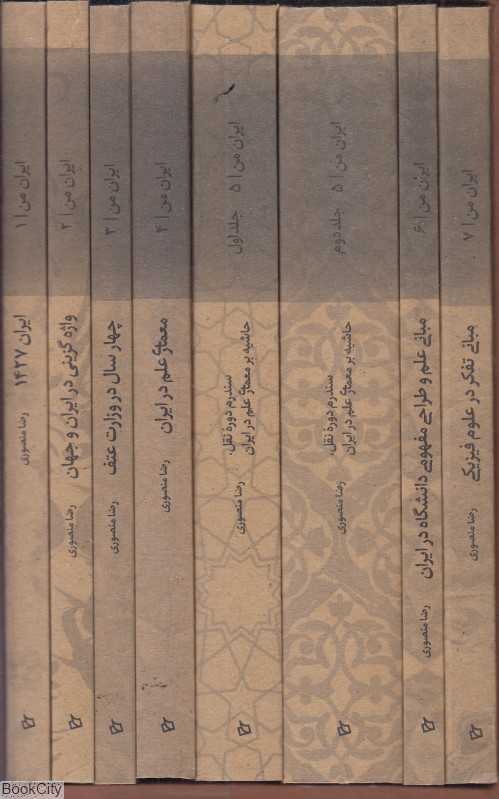 ایران من | ۱
ایران ۱۴۲۷
رضا منصوری
ایران من | ۲
واژه گزینی در ایران و جهان
رضا منصوری
ایران من | ۳
چهار سال در وزارت عتف
رضا منصوری
ایران من | ۴
معماری علم در ایران
رضا منصوری
ایران من | ۵ جلد اول
سندرم دورهٔ نقل،
حاشیه بر معماری علم در ایران
رضا منصوری
ایران من | ۵ جلد دوم
سندرم دورهٔ نقل،
حاشیه بر معماری علم در ایران
رضا منصوری
ایران من | ۶
مبانی علم و طراحی مفهومی دانشگاه در ایران
رضا منصوری
ایران من | ۷
مبانی تفکر در علوم فیزیکی
رضا منصوری
BookCity